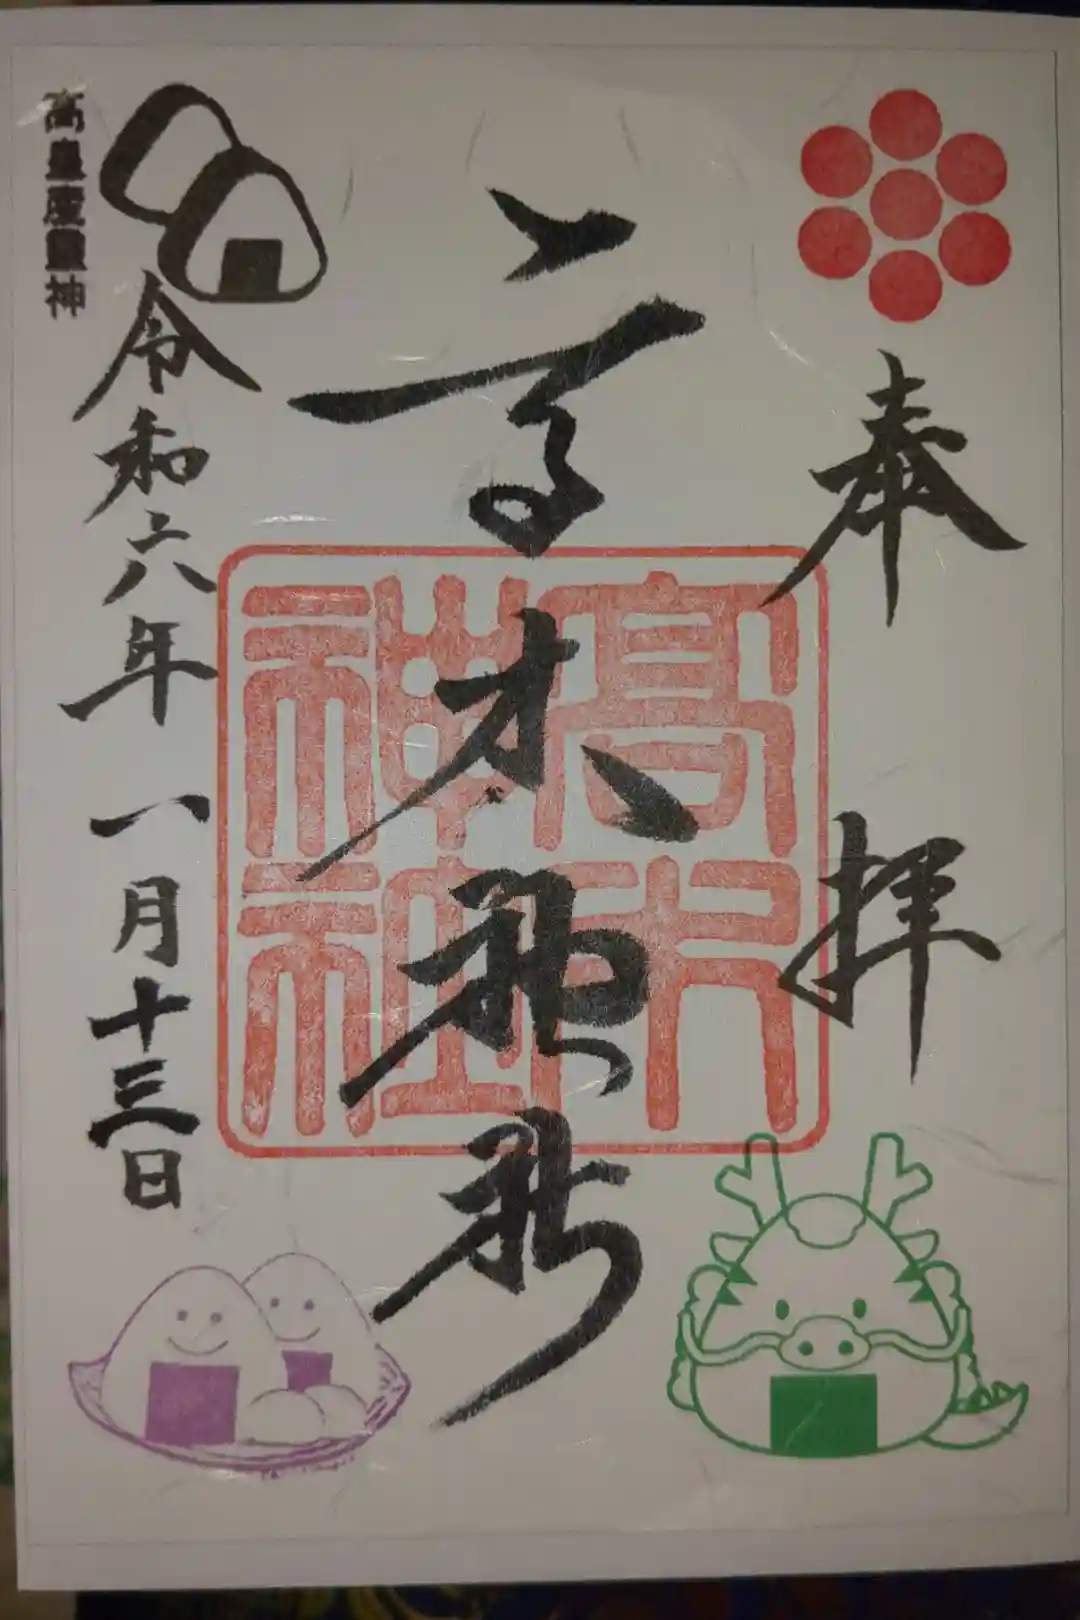 奉拝
高木神社
高木神社
令和六年 一月十三日
高皇産霊神